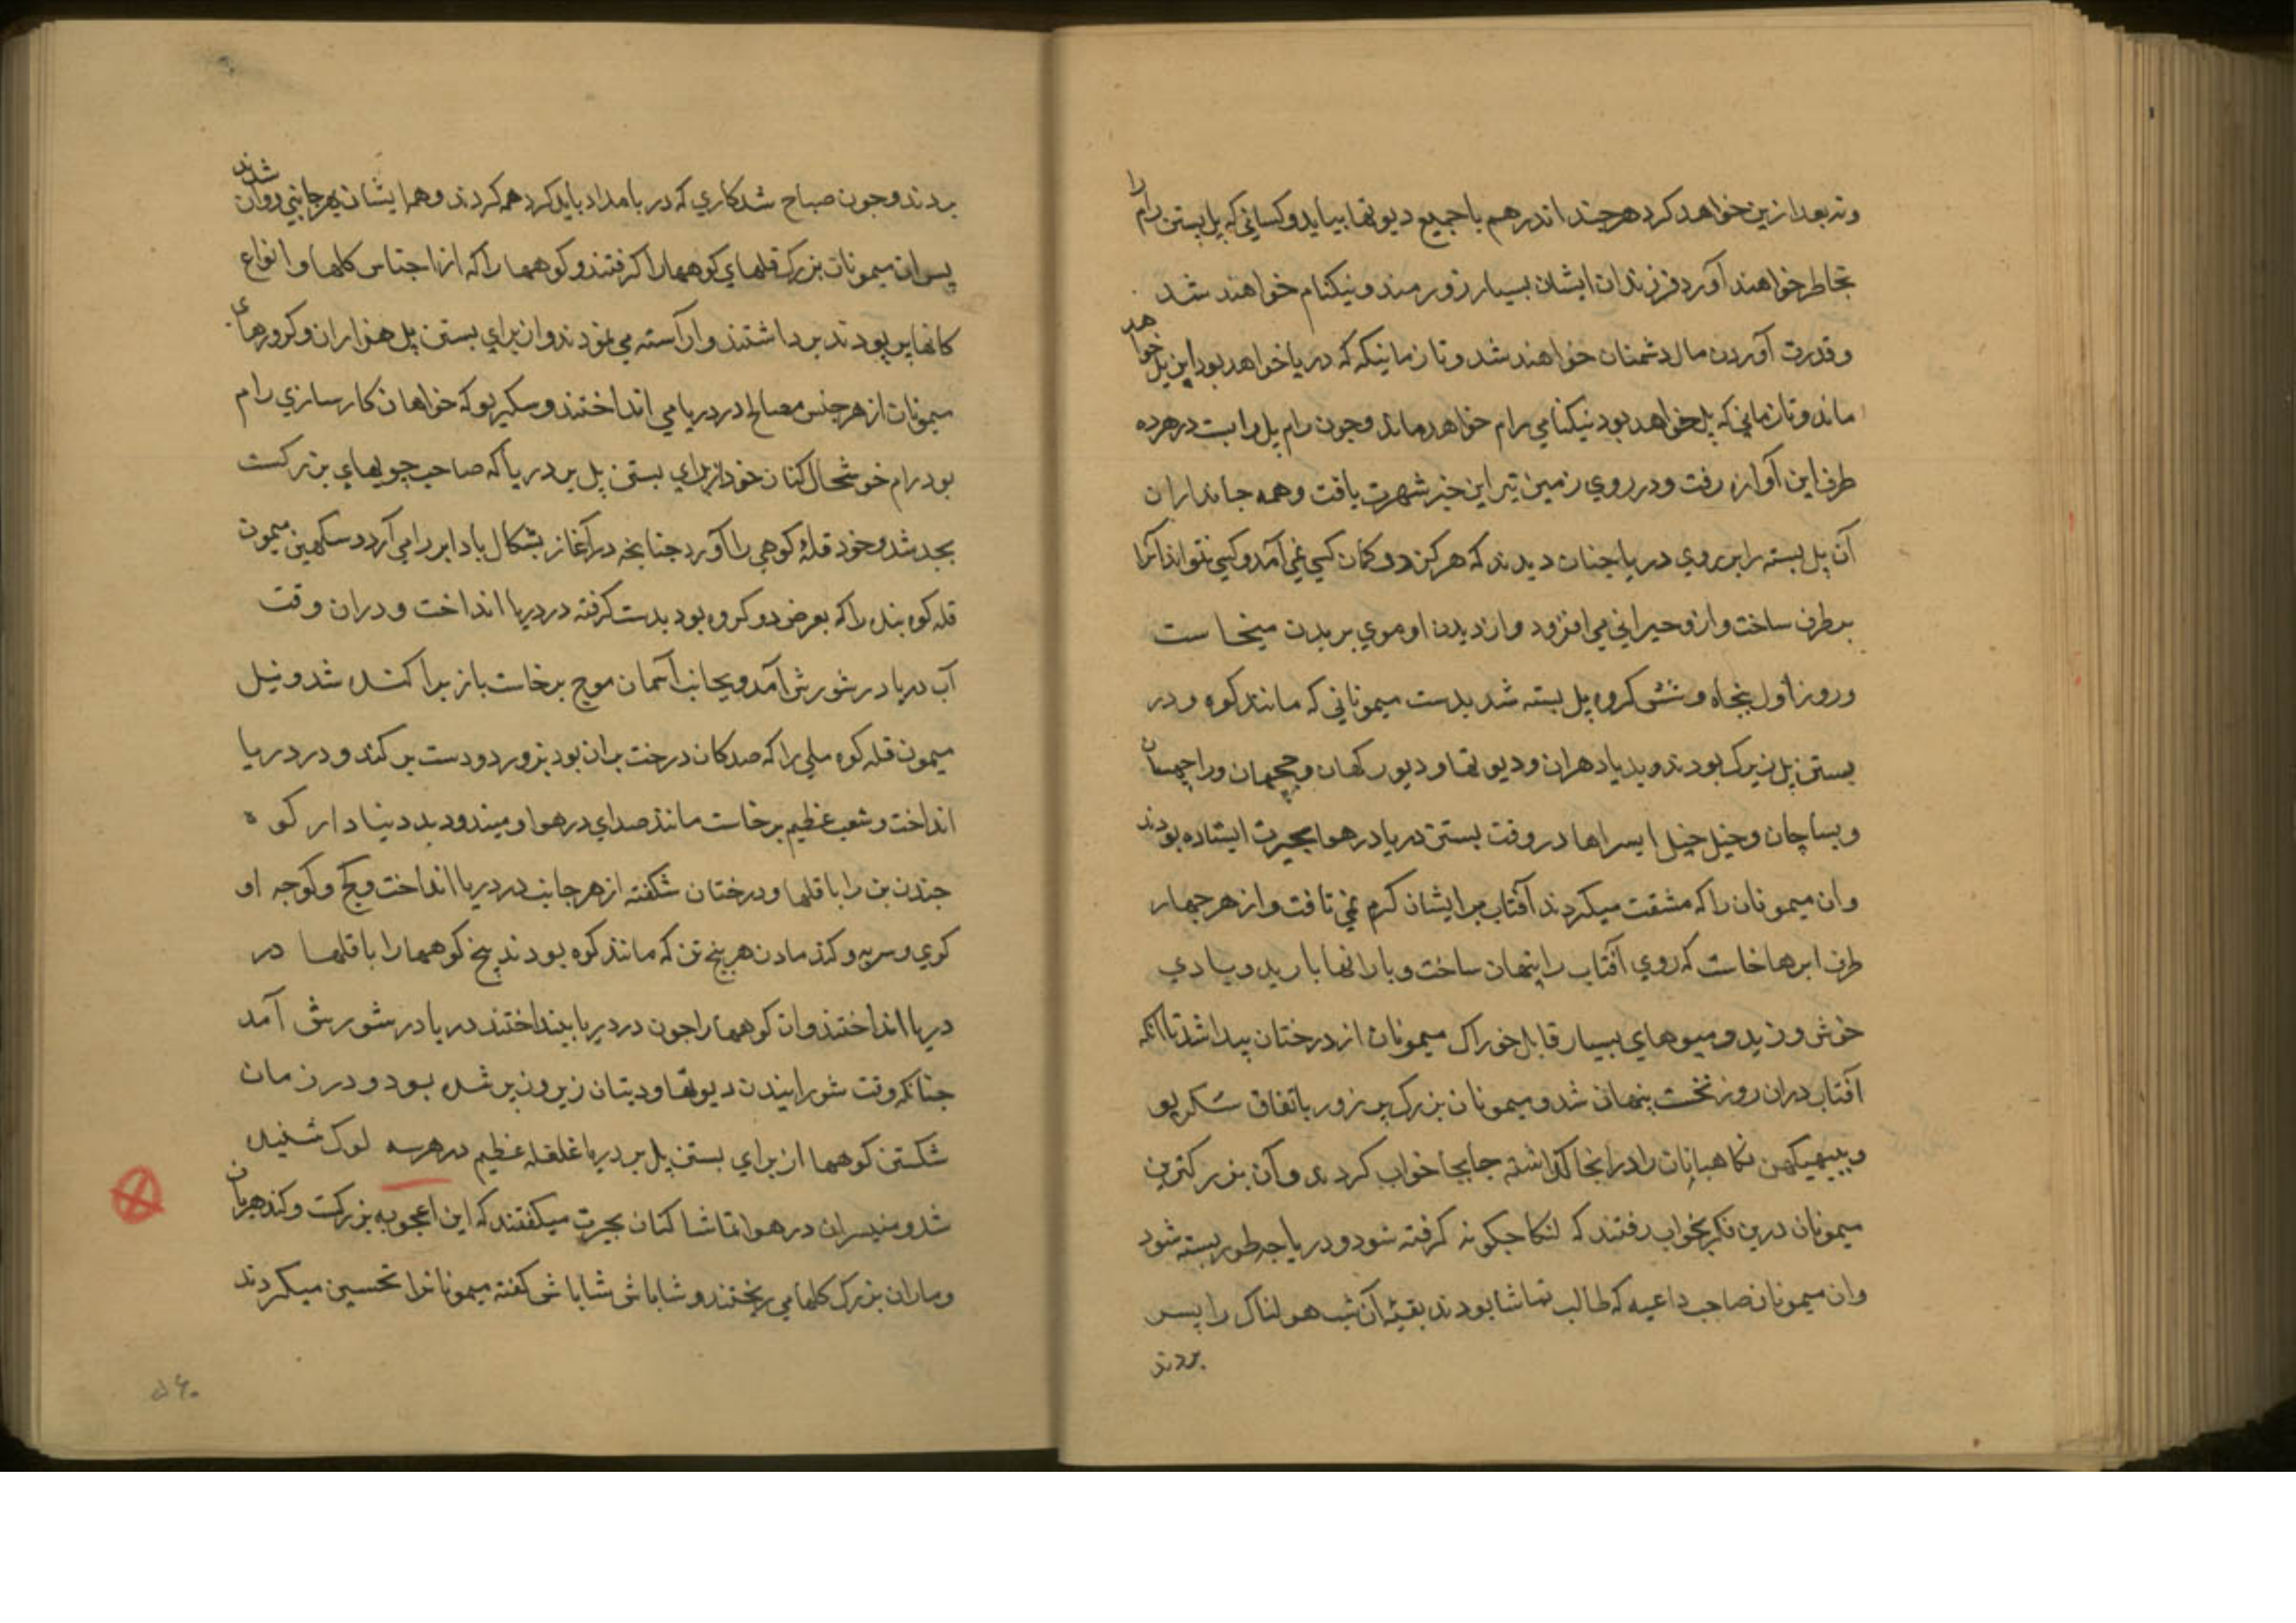 ونه بعد ازین خواهد کرد هرچند اندر هم با جمیع دیوتها بیاید و کسانی که پل بستن رام را
بخاطر خواهند آورد فرزندان ایشان بسیار زورمند و نیکنام خواهند شد
و قدرت آوردن مال دشمنان خواهند شد و تا زمانیکه که دریا خواهد بود این پل خواهد
ماند و تا زمانی که پل خواهد بود نیکنامی رام خواهد ماند و چون رام پل را بست در هر ده
طرف این آوازه رفت و در روی زمین نیز این خبر شهرت یافت و همه جانداران
آن پل بسته را بر روی دریا چنان دیدند که هرکز در کمان کسی نمی آمد و کسی نتواند آنرا
برطرف ساخت و ازو حیرانی می افزود و از دیدن او موی بر بدن میخاست
و روز اول پنجاه و شش کروه پل بسته شد بدست میمونانی که مانند کوه و در
بستن پل زیرک بودند و بدیادهران و دیوتها و دیورکهان و ججهان و راچهسان
و بساچان و خیل خیل ایسراها در وقت بستن دریا در هوا بحیرت ایستاده بودند
وان میمونان را که مشقت میکردند آفتاب بر ایشان کرم نمی تافت و از هر چهار
طرف ابرها خاست که روی آفتاب را پنهان ساخت و بارانها بارید و بادی
خوش وزید و میوهای بسیار قابل خوراک میمونان از درختان پیدا شد تا آنکه
آفتاب دران روز نخست پنهان شد و میمونان بزرک پر زور باتفاق سکریو
و ببهیکهن نکاهبانان را در انجا کذاشته جابجا خواب کردند و آن بزرکترین
میمونان درین فکر بخواب رفتند که لنکا چکونه کرفته شود و دریا چه طور بسته شود
وان میمونان صاحب داعیه که طالب تماشا بودند بقیهٔ آن شب هولناک را بسر
بردند
بردند و چون صباح شد کاری که در بامداد باید کرد همه کردند و همه ایشان بهر جانبی روان شدند
پس ان میمونان بزرک قلهای کوهها را کرفتند و کوهها را که از اجناس کلها و انواع
کانها پر بودند برداشتند و آراسته می نمودند و ان برای بستن پل هزاران و کرورهای
میمونان از هر جنس مصالح در دریا می انداختند و سکریو که خواهان کارسازی رام
بود رام خوشحال کنان خود از برای بستن پل بر دریا که صاحب جویهای بزرکست
بجد شد و خود قلهٔ کوهی را آورد چنانچه در آغاز بشکال باد ابر را می آرد و سکهین میمون
قله کوه بنده را که بعرض دو کروه بود بدست کرفته در دریا انداخت و دران وقت
آب دریا در شورش آمد و بجانب آسمان موج برخاست باز پراکنده شد و نیل
میمون قله کوه ملی را که صد کان درخت بران بود بزور دو دست بر کند و در دریا
انداخت و شعب عظیم برخاست مانند صدای در هوا و میند و دبد دنبادار کوه
چندن بن را با قلها و درختان شکفته از هر جانب در دریا انداخت و کج و کوجه او
کوی و سربه و کندمادن هر پنج تن که مانند کوه بودند پنج کوهها را با قلها در
دریا انداختند و ان کوهها را چون در دریا بینداختند دریا در شورش آمد
چنانکه وقت شورانیدن دیوتها و دیتان زیر و زبر شده بود و در زمان
شکستن کوهها از برای بستن پل بر دریا غلغله عظیم در هر سه لوک شنیده
شد و منیسران در هوا تماشا کنان بحیرت میکفتند که این اعجوبه بزرکست و کندهربان
و ماران بزرک کلها می ریختند و شاباش شاباش کفته میمونانرا تحسین میکردند